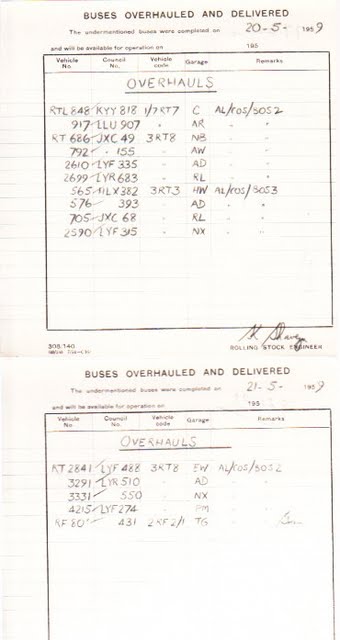 BUSES OVERHAULED AND DELIVERED
The undermentioned buses were completed on 20-5- 1959
and will be available for operation on 195
Vehicle No. Council No. Vehicle code Garage Remarks
OVERHAULS
RTL 848 KYY 818 1/7RT7 C AL/COS/SOS2
917 LLU 907 " AR " "
RT 686 JXC 49 3RT8 NB " "
792 " 155 " AW " "
2610 LYF 335 " AD " "
2699 LYR 683 " RL " "
565 HLX 382 3RT3 HW AL/COS/SOS3
576 " 393 " AD " "
705 JXC 68 " RL " "
2590 LYF 315 " NX " "
305/140
ROLLING STOCK ENGINEER
BUSES OVERHAULED AND DELIVERED
The undermentioned buses were completed on 21-5- 1959
and will be available for operation on 195
Vehicle No. Council No. Vehicle code Garage Remarks
OVERHAULS
RT 2841 LYF 488 3RT8 EW AL/COS/SOS2
3291 LYR 510 " AD " "
3331 " 550 " NX " "
4215 LYF 274 " PM " "
RF 80 " 431 2RF2/1 TG "